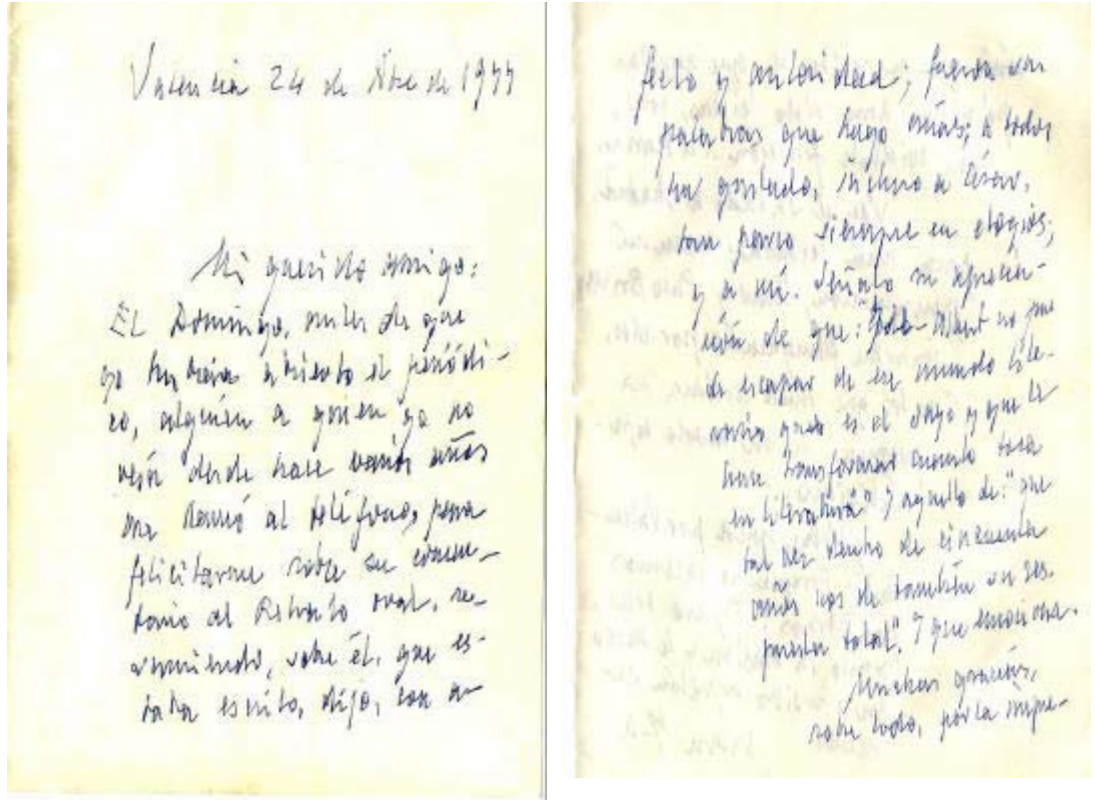 Valencia 24 de Nbre de 1977
Mi querido amigo:
EL Domingo, antes de que
yo hubiera abierto el periódi-
co, alguien a quien yo no
veía desde hace varios años
me llamó al teléfono, para
felicitarme sobre su comen-
tario al Retrato oval, re-
sumiendo, sobre él, que es-
taba escrito, dijo, con a-
fecto y autoridad; fueron sus
palabras que hago mías; a todos
ha gustado, incluso a César,
tan parco siempre en elogios;
y a mí. Señalo su aprecia-
ción de que: Albert no pue-
de escapar de ese mundo lite-
rario que es el suyo y que le
hace transformar cuanto toca
en literatura" Y aquello de: "que
tal vez dentro de cincuenta
años nos dé también su res-
puesta total". Y que emociona.
Muchas gracias,
sobre todo, por la impe-